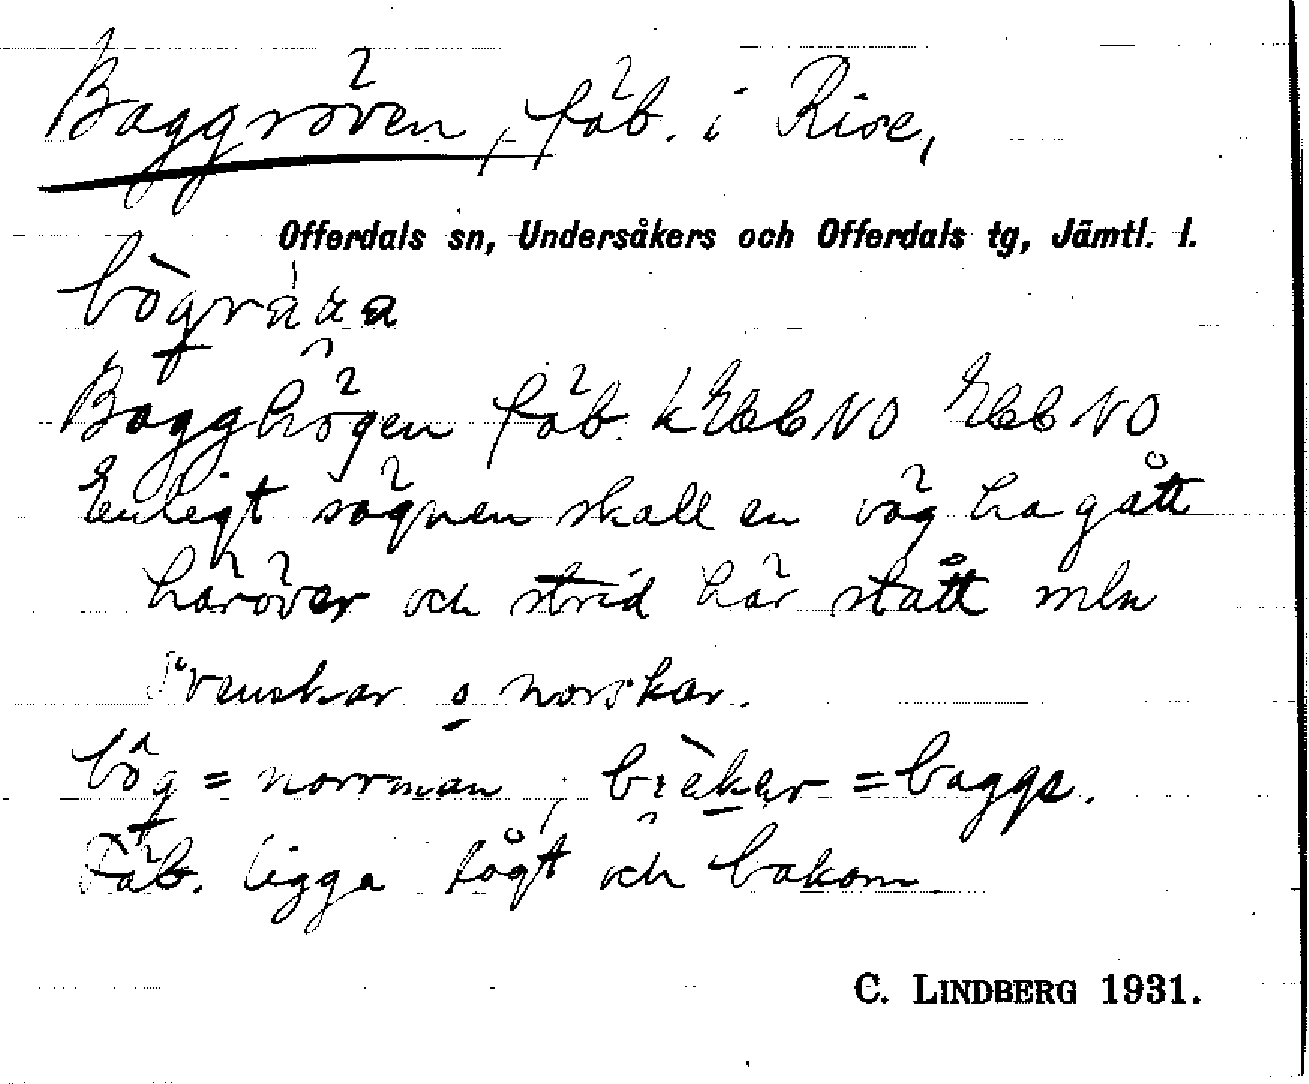 Baggröven, fäb. i Rise,
Offerdals sn, Undersåkers och Offerdals tg, Jämtl. l.
Bagghögen fäb. NO NO
Enligt sägnen skall en väg ha gått
häröver och strid här stått mln
Svenskar o norskar.
bög = norrman, = bagge.
Fäb. ligga högt och bakom
C. LINDBERG 1931.